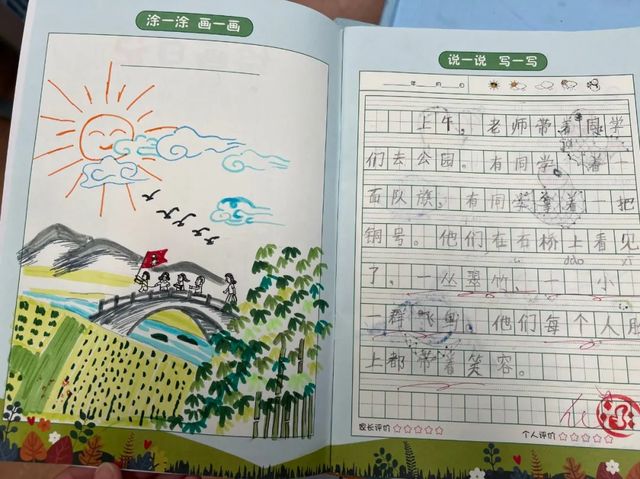 涂一涂 画一画
说一说 写一写
年 月 日
上午，老师带着同学
们去公园。有同学 着一
面队旗，有同学拿着一把
铜号。他们在石桥上看见
了，一丛翠竹，一 小
一群飞鸟，他们每个人脸
上都带着笑容。
家长评价☆☆☆☆☆
个人评价☆☆☆☆☆